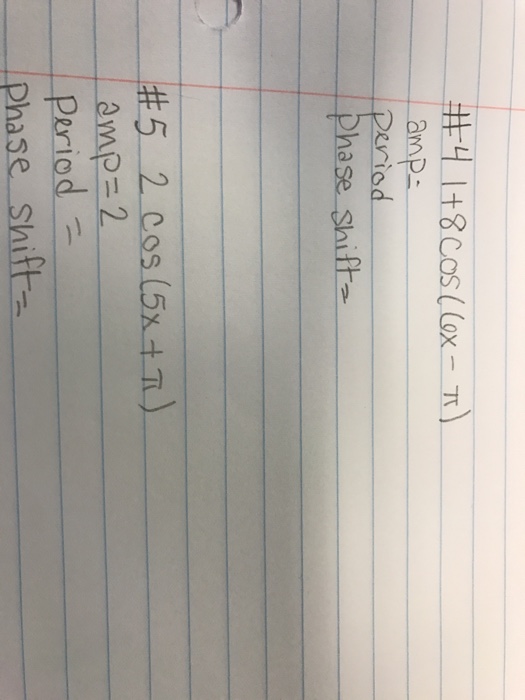 #4 1+8cos(6x-π)
amp=
period
phase shift=
#5 2 cos(5x+π)
amp=2
period =
phase shift=